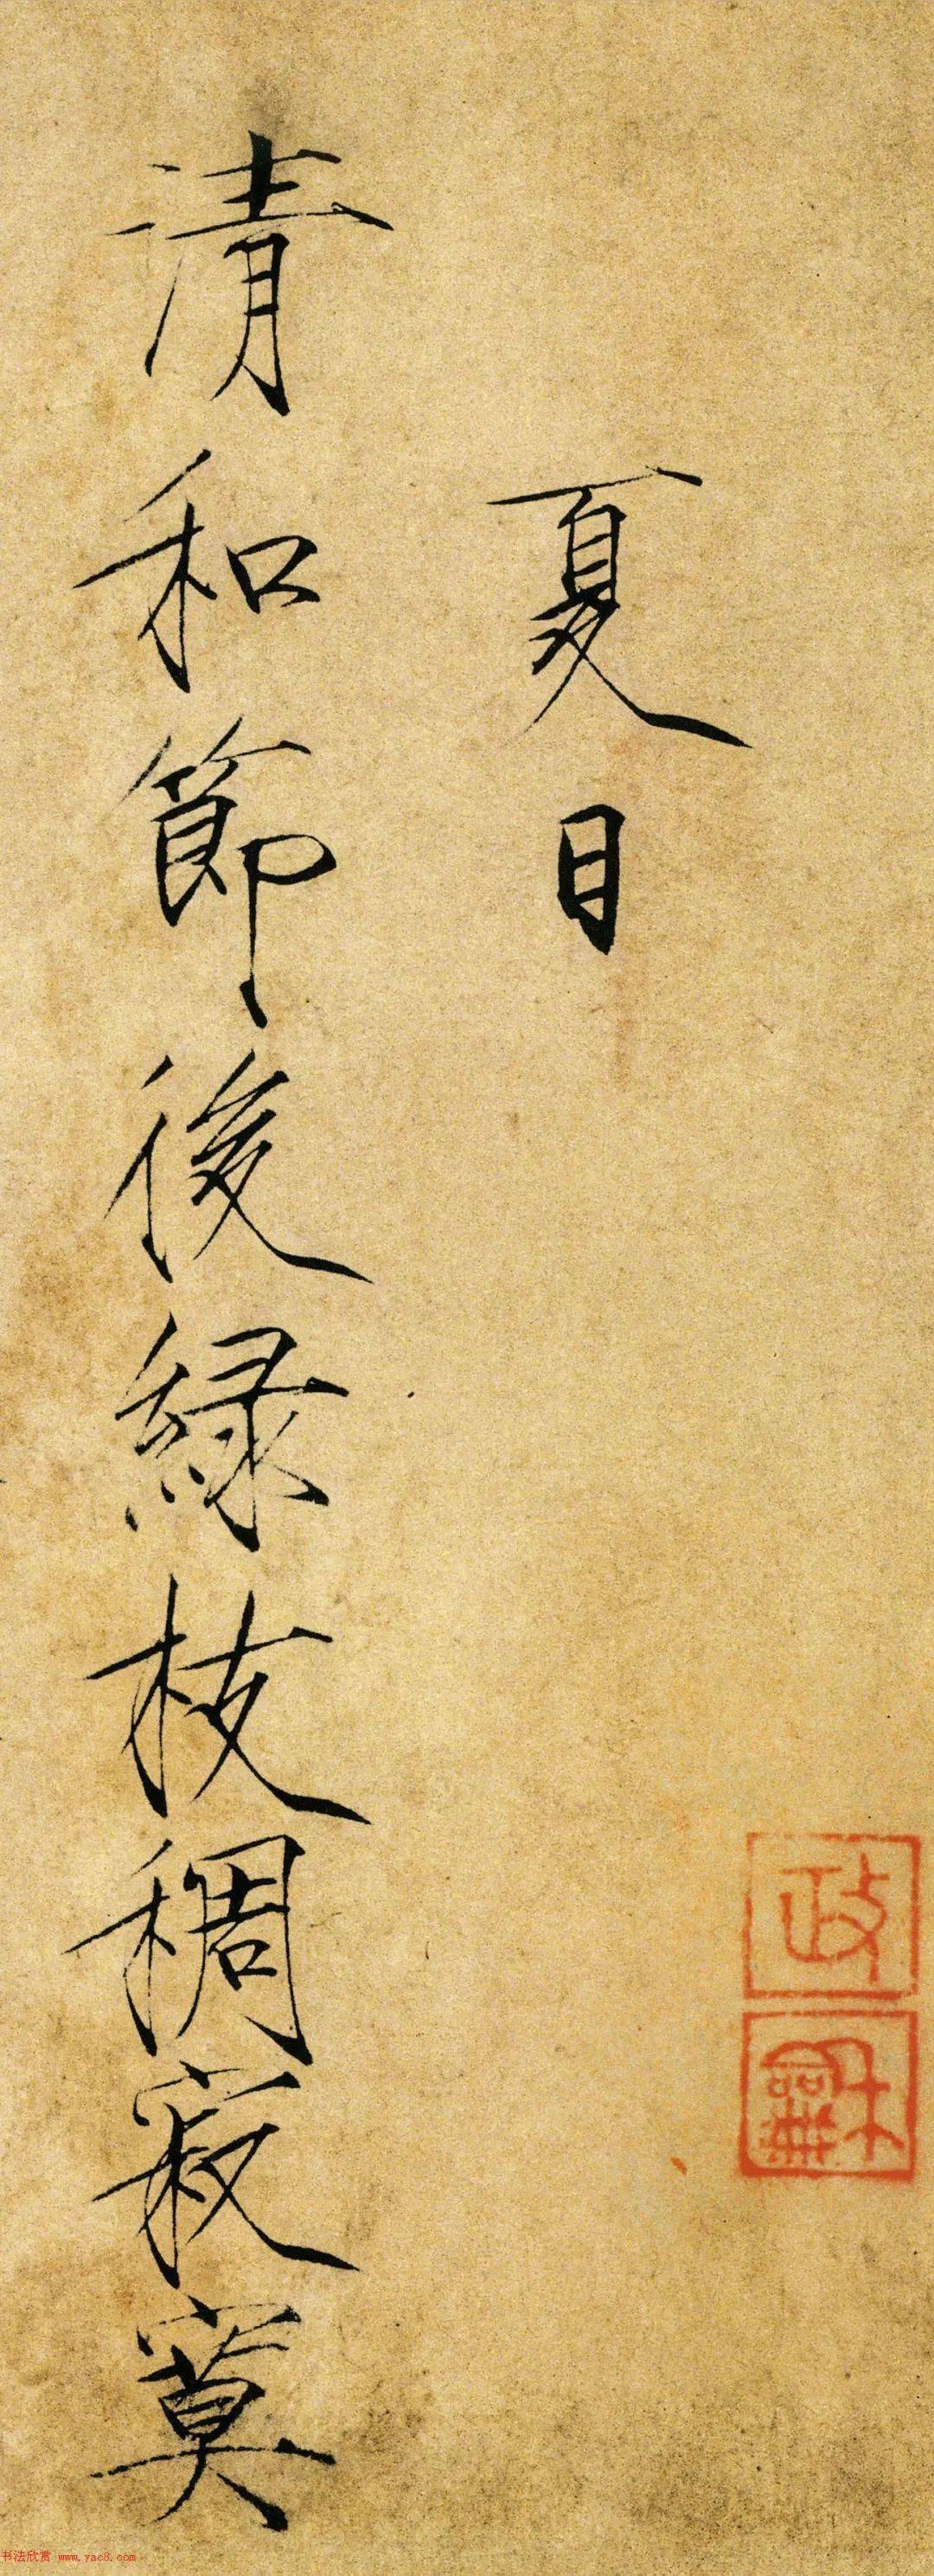 夏日
清和節後緑枝稠寂寞
政
龢
书法欣赏 www.yac8.com